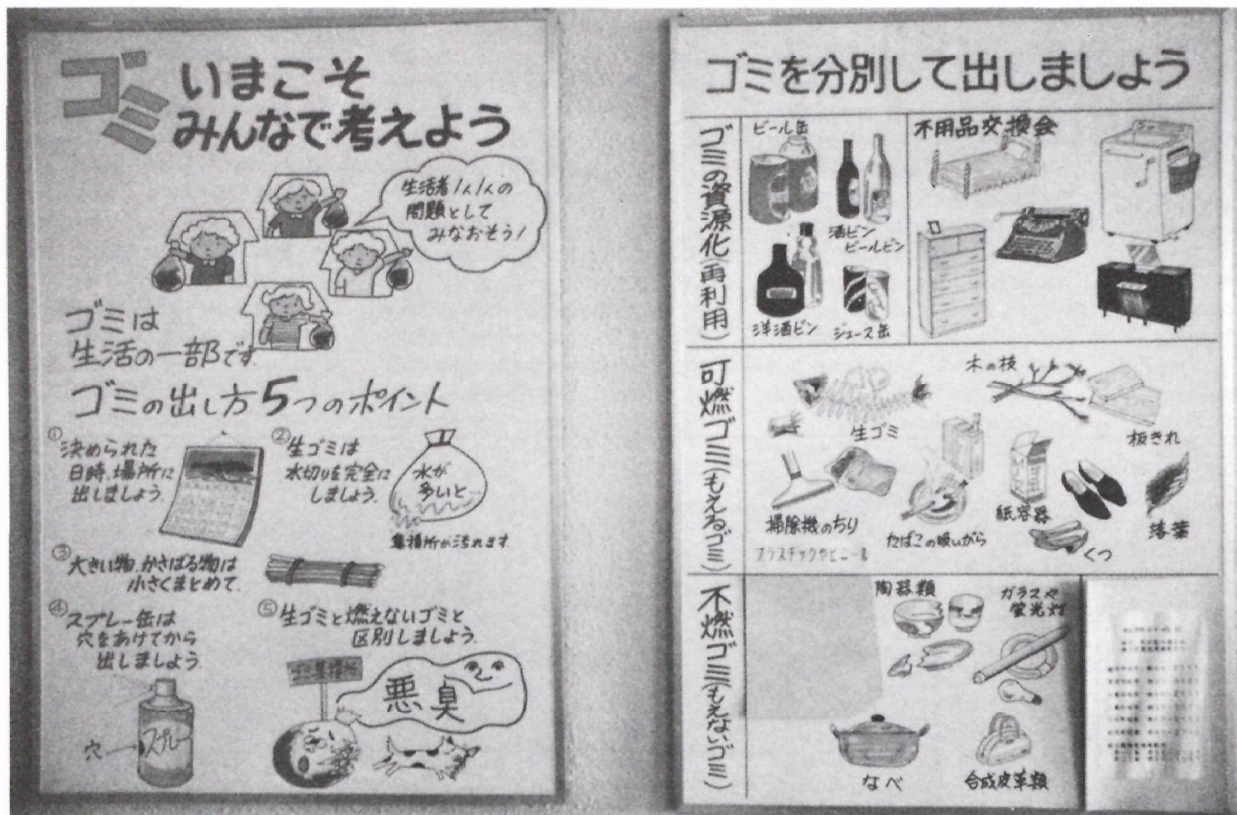 ゴミ いまこそ
みんなで考えよう
生活者1人1人の
問題として
みなおそう!
ゴミは
生活の一部です
ゴミの出し方5つのポイント
①決められた
日時、場所に
出しましょう
②生ゴミは
水切りを完全に
しましょう
水が
多いと
集積所が汚れます
③大きい物、かさばる物は
小さくまとめて
④スプレー缶は
穴をあけてから
出しましょう
穴
スプレー
⑤生ゴミと燃えないゴミと
区別しましょう
ゴミ集積所
悪臭
ゴミを分別して出しましよう
ゴミの資源化(再利用)
ビール缶
酒ビン
ビールビン
洋酒ビン
ジュース缶
不用品交換会
可燃ゴミ(もえるゴミ)
生ゴミ
木の枝
板きれ
掃除機のちり
たばこの吸いがら
紙容器
くつ
落葉
プラスチックやビニール
不燃ゴミ(もえないゴミ)
陶器類
ガラスや
蛍光灯
なべ
合成皮革類